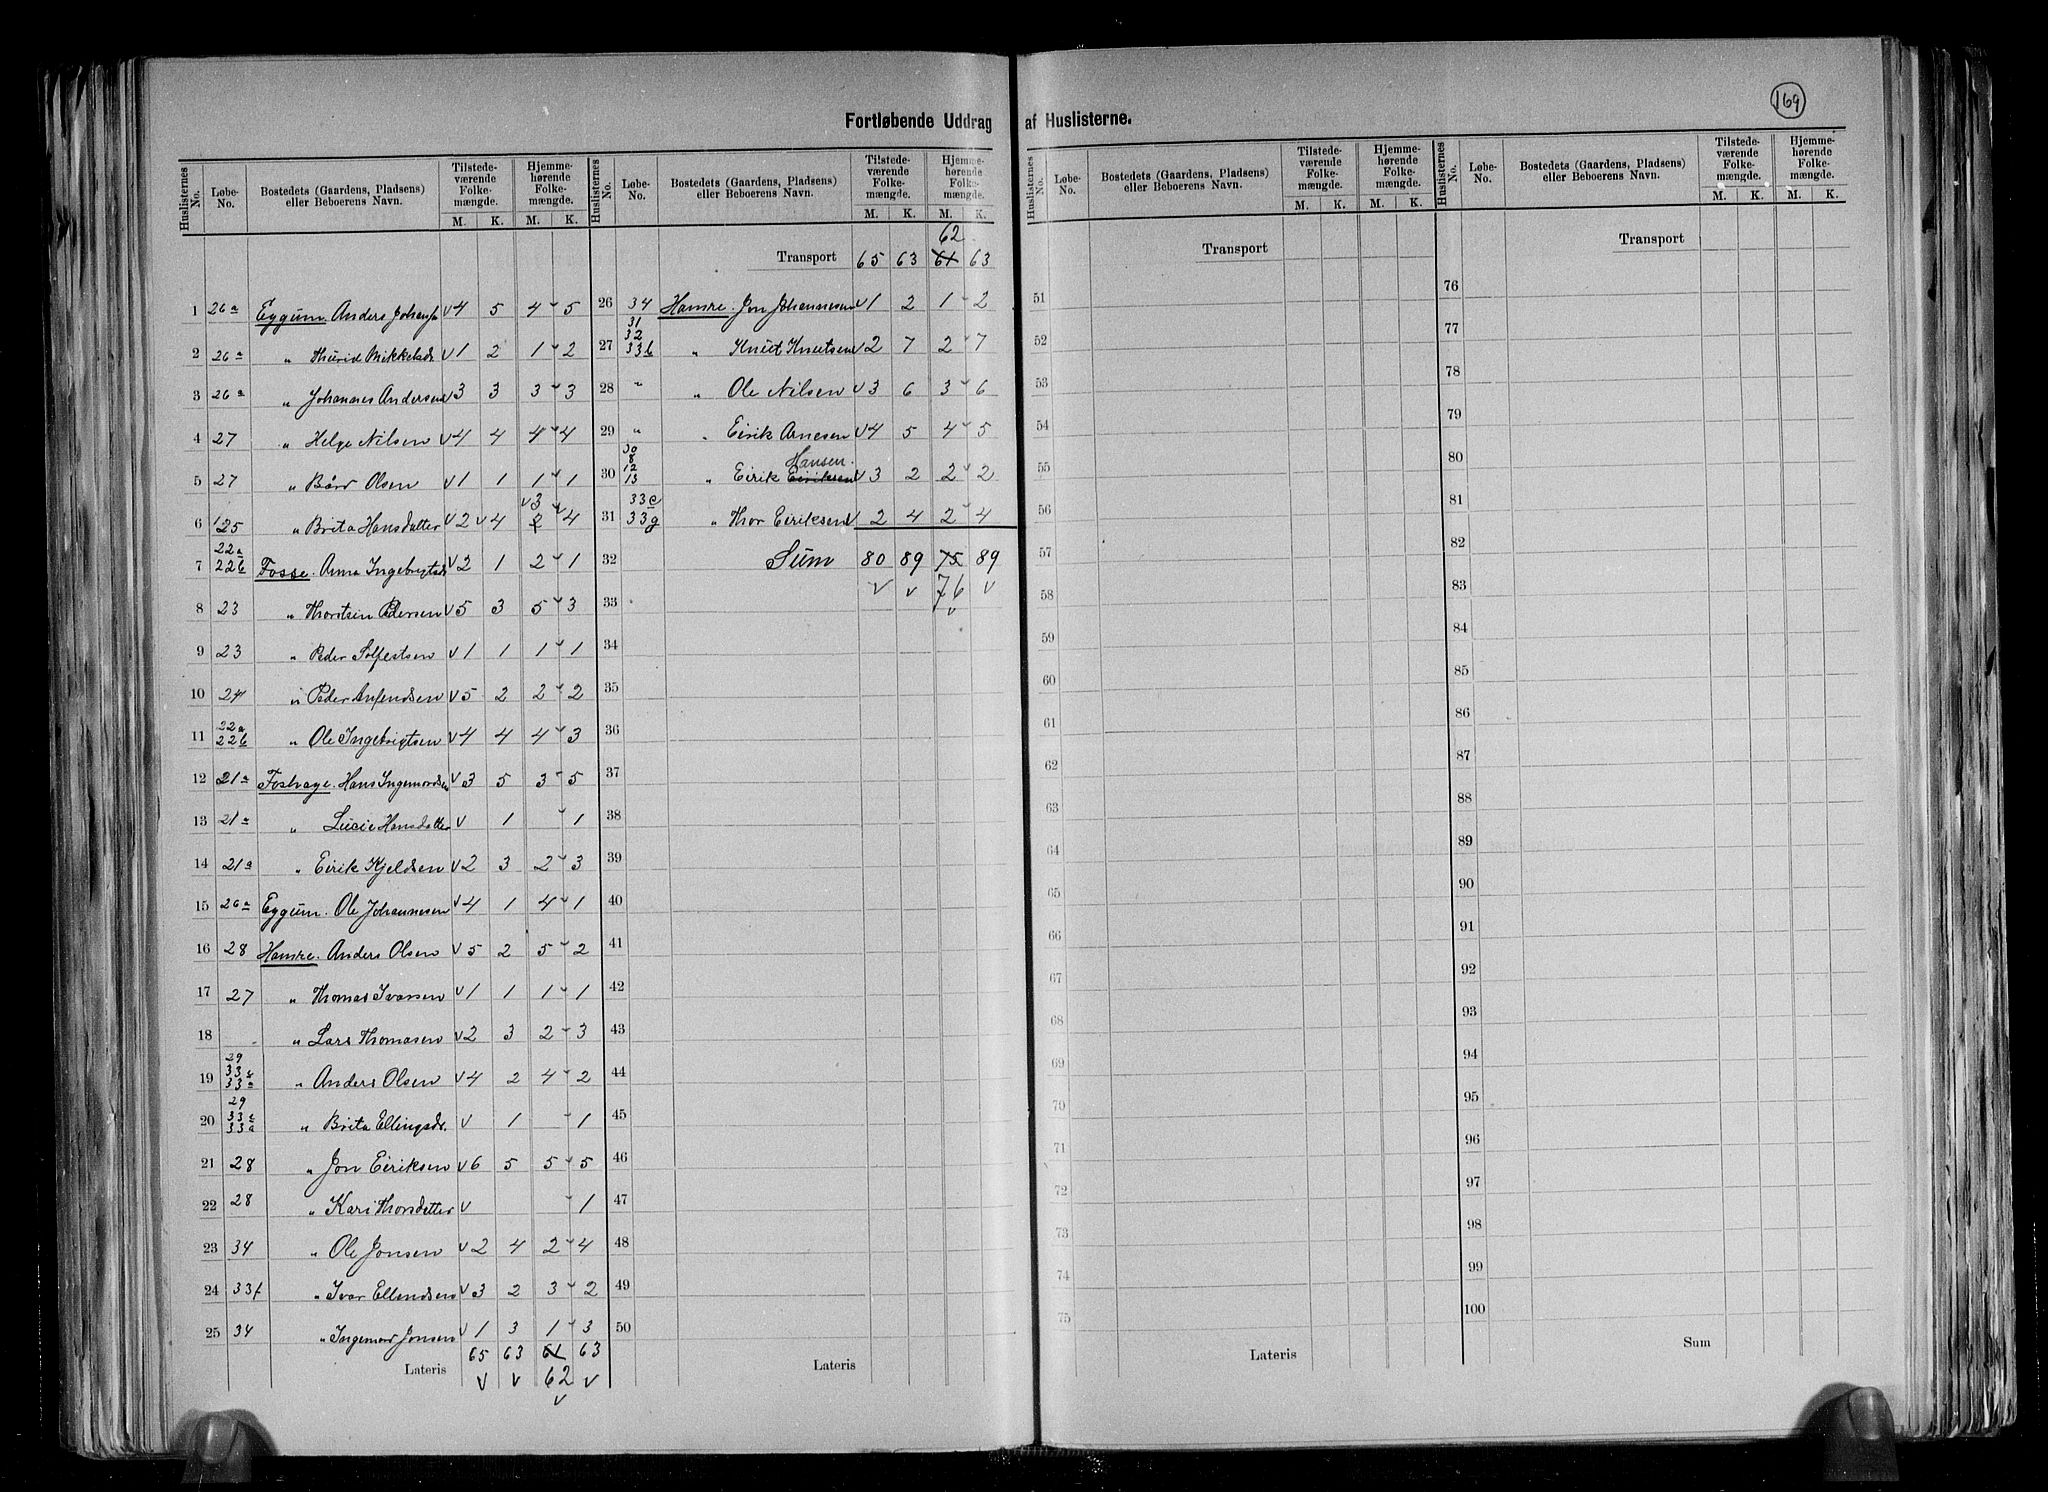 169
Fortløbende Uddrag af Huslisterne.
Huslisternes No. Løbe-No. Bostedets (Gaardens, Pladsens) eller Beboerens Navn. Tilstede-værende Folke-mængde. Hjemme-hørende Folke-mængde.
M. K. M. K.
1 26a Eggum. Anders Johans 4 5 4 5
2 26a " Thurid Mikkelsdr 1 2 1 2
3 26a " Johannes Andersen 3 3 3 3
4 27 " Helge Nilsen 4 4 4 4
5 27 " Bård Olsen 1 1 1 1
6 125 " Brita Hansdatter 2 4 3 4
7 22a 22b Fosse. Anna Ingebrigtsd 2 1 2 1
8 23 " Thorstein Pedersen 5 3 5 3
9 23 " Peder Solfestsen 1 1 1 1
10 24 " Peder Anfindsen 5 2 2 2
11 22a 22b " Ole Ingebrigtsen 4 4 4 3
12 21a Foshage. Hans Ingemordsen 3 5 3 5
13 21a " Lucie Hansdatter 1 1
14 21a " Eirik Kjeldsen 2 3 2 3
15 26a Eggum. Ole Johannesen 4 1 4 1
16 28 Hamre. Anders Olsen 5 2 5 2
17 27 " Thomas Ivarsen 1 1 1 1
18 " Lars Thomasen 2 3 2 3
19 29 33c 33a " Anders Olsen 4 2 4 2
20 29 33c 33a " Brita Ellingsdr. 1 1
21 28 " Jon Eiriksen 6 5 5 5
22 28 " Kari Thorsdatter 1
23 34 " Ole Jonsen 2 4 2 4
24 33f " Ivar Ellendsen 3 2 3 2
25 34 " Ingemord Jonsen 1 3 1 3
Lateris 65 63 61 63
62
Huslisternes No. Løbe-No. Bostedets (Gaardens, Pladsens) eller Beboerens Navn. Tilstede-værende Folke-mængde. Hjemme-hørende Folke-mængde.
M. K. M. K.
62
Transport 65 63 61 63
26 34 Hamre. Jon Johannesen 1 2 1 2
27 31 32 33b " Knut Knutsen 2 7 2 7
28 " " Ole Nilsen 3 6 3 6
29 " " Eirik Arnesen 4 5 4 5
Hansen.
30 30 8 12 13 " Eirik Eiriksen 3 2 2 2
31 33e 33g " Thor Eiriksen 2 4 2 4
32 Sum 80 89 75 89
76
33
34
35
36
37
38
39
40
41
42
43
44
45
46
47
48
49
50
Lateris
Huslisternes No. Løbe-No. Bostedets (Gaardens, Pladsens) eller Beboerens Navn. Tilstede-værende Folke-mængde. Hjemme-hørende Folke-mængde.
M. K. M. K.
Transport
51
52
53
54
55
56
57
58
59
60
61
62
63
64
65
66
67
68
69
70
71
72
73
74
75
Lateris
Huslisternes No. Løbe-No. Bostedets (Gaardens, Pladsens) eller Beboerens Navn. Tilstede-værende Folke-mængde. Hjemme-hørende Folke-mængde.
M. K. M. K.
Transport
76
77
78
79
80
81
82
83
84
85
86
87
88
89
90
91
92
93
94
95
96
97
98
99
100
Sum